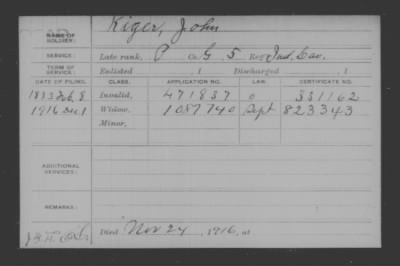 NAME OF SOLDIER: Kiger, John
SERVICE: Late rank, P Co. G, 5 Reg't Ind. Cav.
TERM OF SERVICE: Enlisted , 1 Discharged , 1
DATE OF FILING. CLASS. APPLICATION NO. LAW. CERTIFICATE NO.
1883 Feb. 8 Invalid, 471837 331162
1916 Dec 1 Widow, 1087740 Sept 823343
Minor,
ADDITIONAL SERVICES:
REMARKS:
Died Nov 24, 1916, at